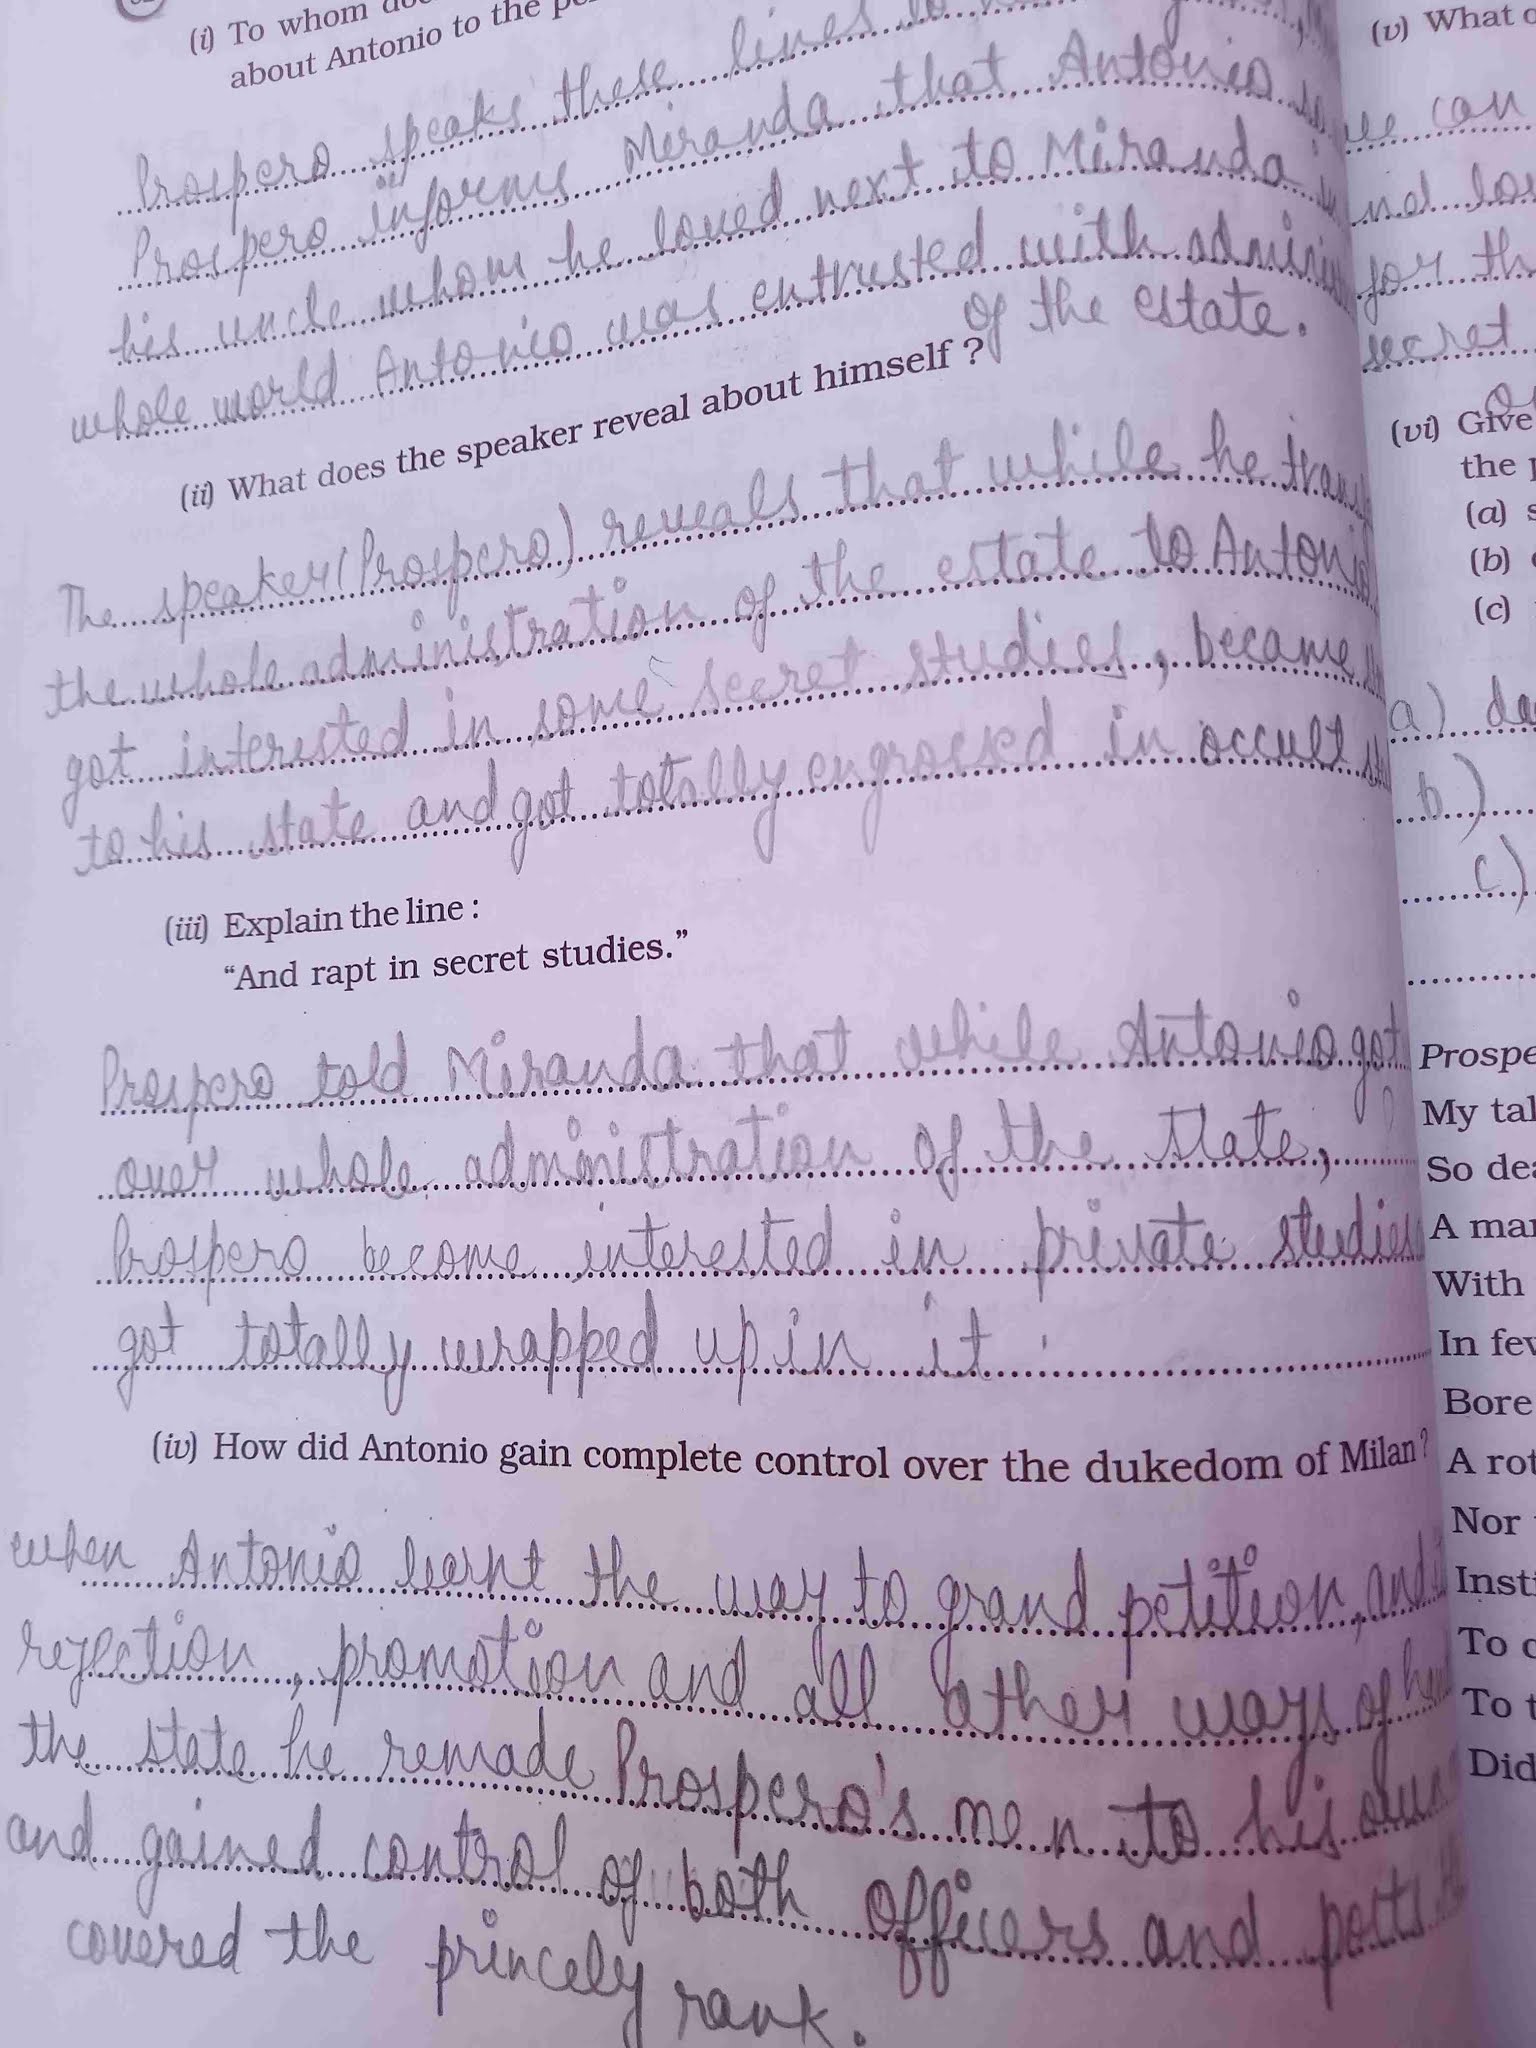 (i) To whom
about Antonio to the
Prospero speaks these lines to
Prospero informs Miranda that Antonio
his uncle whom he loved next to Miranda
whole world Antonio was entrusted with
of the estate.
(ii) What does the speaker reveal about himself ?
The speaker (Prospero) reveals that while he
the whole administration of the estate to Antonio
got interested in some secret studies, became
to his state and got totally engrossed in occult
(iii) Explain the line :
“And rapt in secret studies.”
Prospero told Miranda that while Antonio got
over whole administration of the state,
Prospero become interested in private studies
got totally wrapped up in it.
(iv) How did Antonio gain complete control over the dukedom of Milan ?
when Antonio learnt the way to grand petition, and
rejection, promotion and all other ways of
the state he remade Prospero's men to his own
and gained control of both officers and
covered the princely rank.
(v) What
can
for
secret
(vi) Give
the
(a)
(b)
(c)
a)
b)
c)
My
So
A
With
In
Bore
A
Nor
To
To
Did